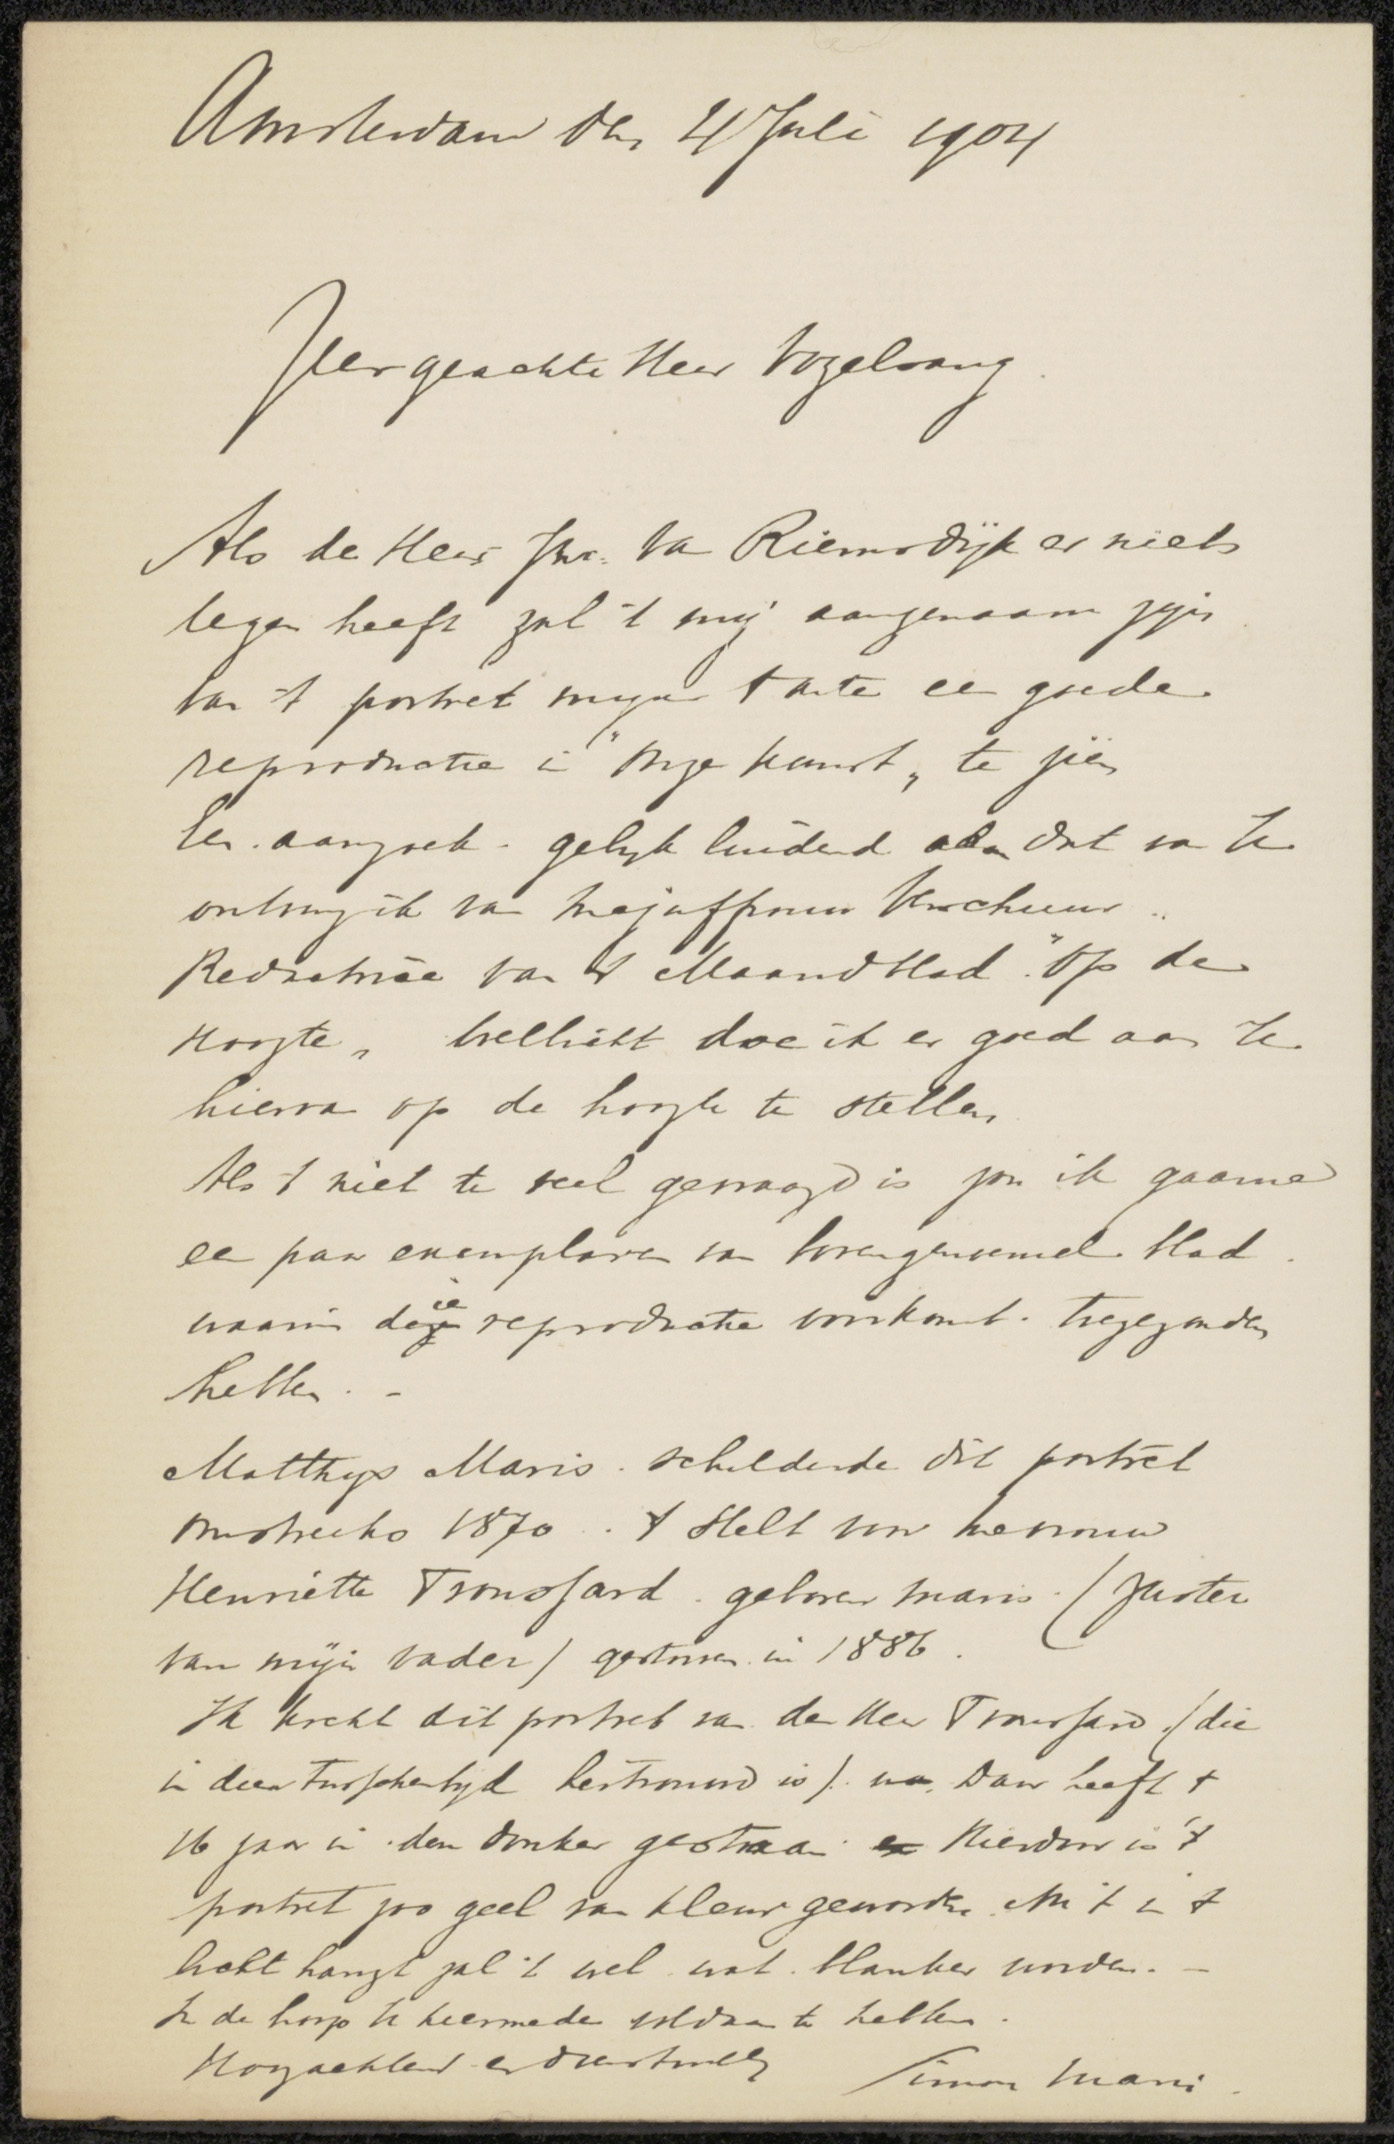 Amsterdam den 4 Juli 1904
Zeer geachte Heer Vogelsang.
Als de Heer Jhr. Van Riemsdijk er niets
tegen heeft zal 't mij aangenaam zijn
van 't portret mijner tante een goede
reproductie in "Onze Kunst„ te zien
Een aanzoek gelijk luidend aan dat van U
ontving ik van Mejuffrouw Verschuur
Redactrice van 't Maandblad "Op de
Hoogte„ wellicht doe ik er goed aan U
hiervan op de hoogte te stellen
Als 't niet te veel gevraagd is zou ik gaarne
een paar exemplaren van bovengenoemd blad
waarin die reproductie voorkomt. toegezonden
hebben. -
Matthijs Maris schilderde dit portret
omstreeks 1870. 't Stelt voor mevrouw
Henriette Fronsfard geboren Maris. (Zuster
van mijn vader) gestorven in 1886.
Ik kreeg dit portret van den Heer Fronsfard (die
in dien tusschentijd hertrouwd is). Daar heeft 't
16 jaar in den donker gestaan Hierdoor is 't
portret zoo geel van kleur geworden. Nu 't in 't
licht hangt zal 't wel wat blanker worden. -
In de hoop U hiermede voldaan te hebben.
Hoogachtend en vriendschappelijk Simon Maris.